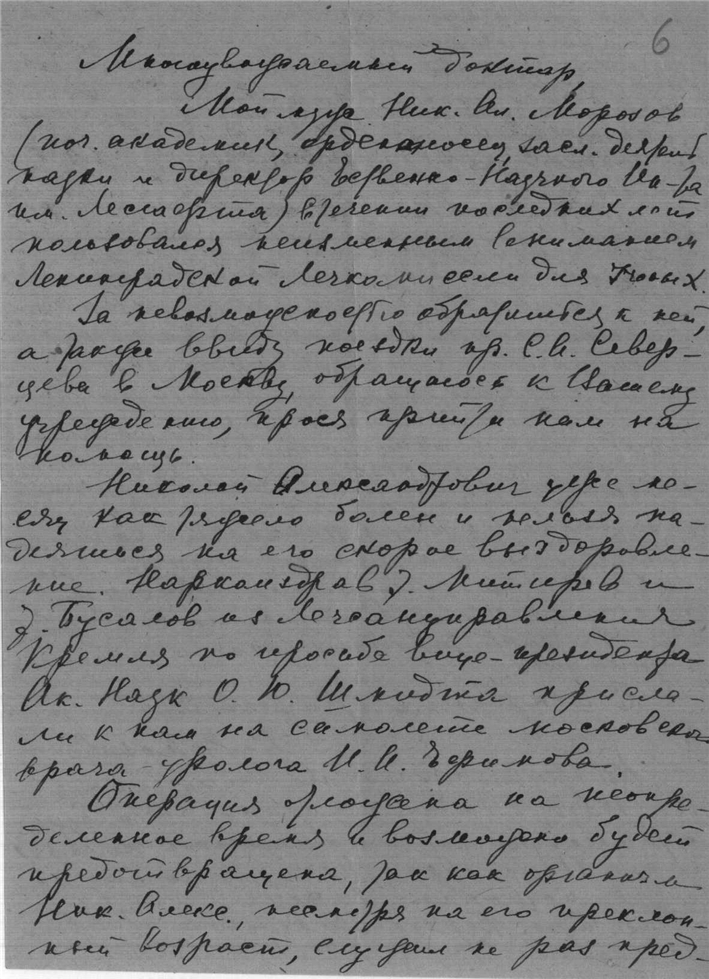 6
Многоуважаемый доктор,
Мой муж Ник. Ал. Морозов
(поч. академик, орденоносец, засл. деятель
науки и директор Ественно-Научного Ин-та
им. Лесгафта) в течении последних лет
пользовался неизменным вниманием
Ленинградской Лечкомиссии для Ученых.
За невозможностью обратиться к ней,
а также ввиду поездки пр. С.А.
в Москву, обращаюсь к Вашему
учреждению, прося притти нам на
помощь.
Николай Александрович уже ме-
сяц как тяжело болен и нельзя на-
деяться на его скорое выздоровле-
ние. Наркомздрав т. Митирев и
т. Бусалов из Лечсануправления
Кремля по просьбе вице-президента
Ак. Наук О. Ю. Шмидта присла-
ли к нам на самолете московского
врача-уролога И. И.
Операция отложена на неопре-
деленное время и возможно будет
предотвращена, так как организм
Ник. Алекс., несмотря на его преклон-
ный возраст, служил не раз пред-